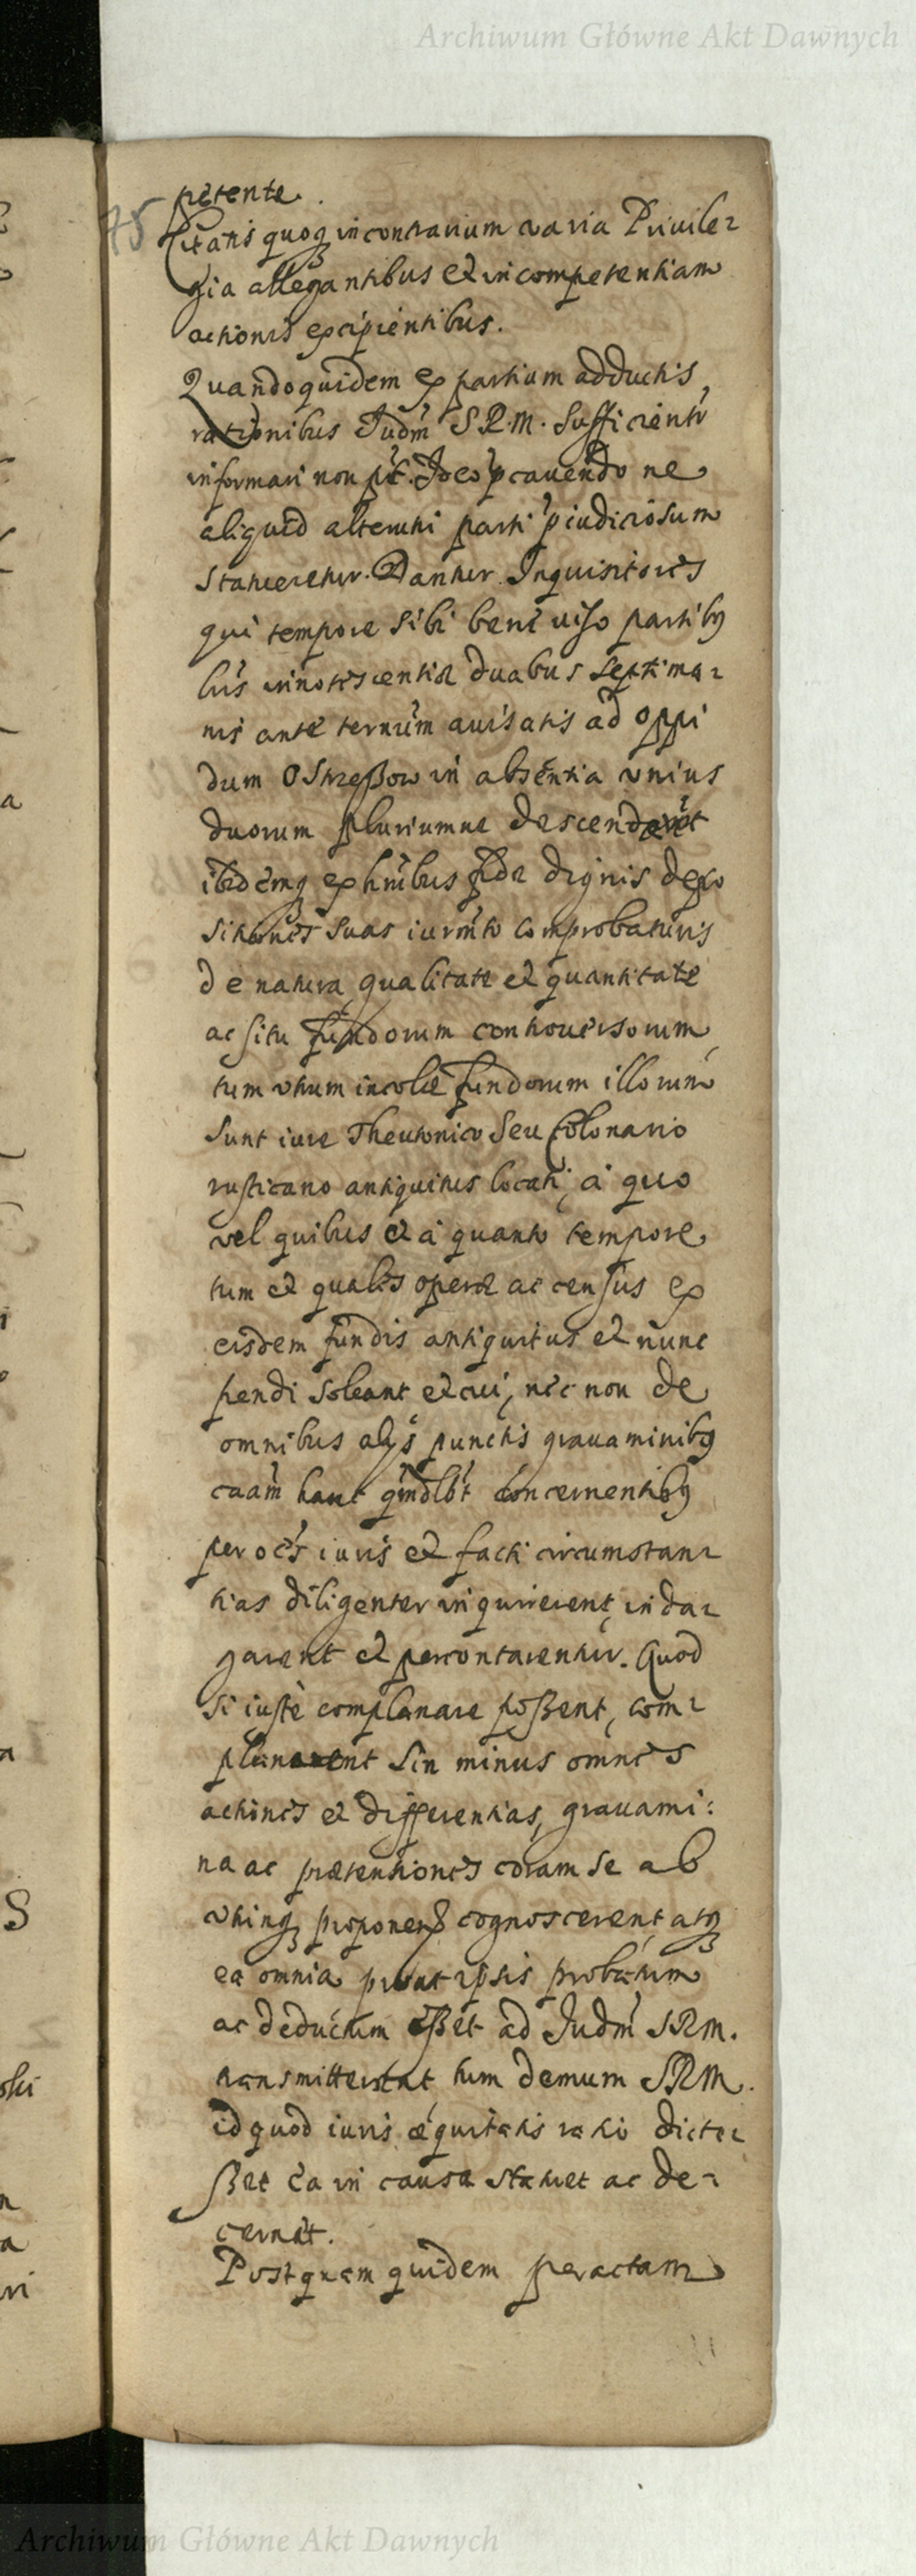 Archiwum Główne Akt Dawnych
petente.
75
Citatis quoq in contrarium varia Priuile-
gia allegantibus et incompetentiam
actionis excipientibus.
Quandoquidem ex partium adductis
rationibus Judm S.R.M. sufficientr
informari non pt. Ideo pcauendo ne
aliquid alterutri parti piudiciosum
statueretur. Dantur Inquisitores
qui tempore sibi bene viso partibq
his innotescentiæ duabus septima-
nis ante ternum auisatis ad oppi
dum Ostrzeßow in absentia vnius
duorum pluriumue descenderet
ibidemq ex hnibus fide dignis depo
sitiones suas iurmto comprobaturis
de natura qualitate et quantitate
ac situ fundorum controuersorum
tum vtrum incolæ fundorum illorum
sunt iure Theutonico seu Colonario
rusticano antiquitus locati, à quo
vel quibus et à quanto tempore
tum et quales operæ ac census ex
eisdem fundis antiquitus et nunc
pendi soleant et cui, nec non de
omnibus alys punctis grauaminibq
caam hanc qmdlbt concernentibq
per oes iuris et facti circumstan-
tias diligenter inquirerent, inda-
garent et percontarentur. Quod
si iustè complanare poßent, com-
planarent sin minus omnes
actiones et differentias, grauami:
na ac prætentiones coram se ab
vtrinq proponend cognoscerent atq
ea omnia prout ipsis probatum
ac deductum eßet ad Judm SRM.
transmitterent tum demum SRM.
id quod iuris æquitatis ratio dicta-
ßet ea in causa statuet ac de-
cernet.
Postquam quidem peractam
Archiwum Główne Akt Dawnych